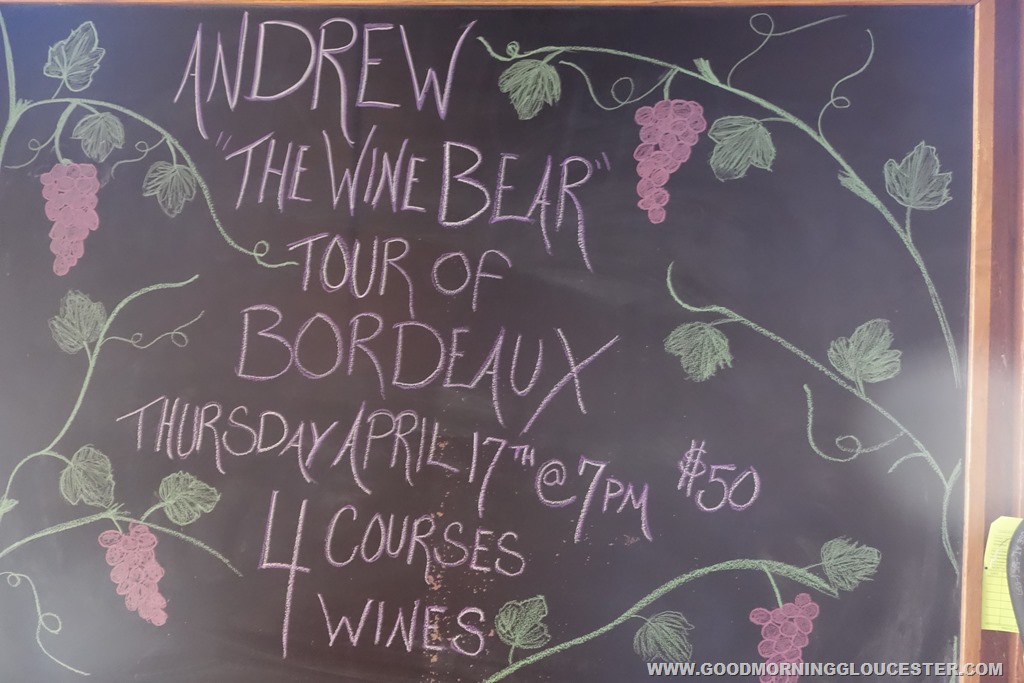 ANDREW
"THE WINE BEAR"
TOUR OF
BORDEAUX
THURSDAY APRIL 17TH @ 7PM $50
4 COURSES
WINES
WWW.GOODMORNINGGLOUCESTER.COM